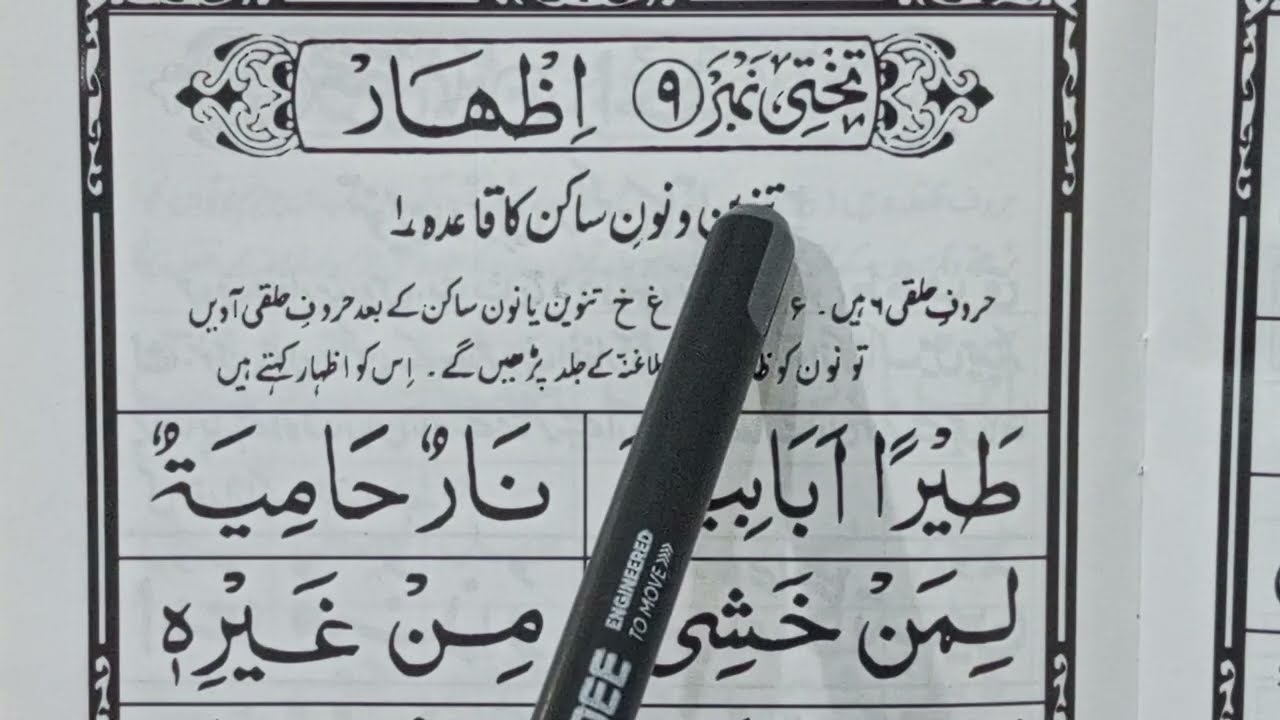 تختی نمبر ۹ اِظْهَارْ
تنوین و نونِ ساکن کا قاعدہ ۱
حروفِ حلقی ۶ ہیں۔ ء غ خ تنوین یا نون ساکن کے بعد حروفِ حلقی آویں
تو نون کو کے جلد پڑھیں گے۔ اِس کو اظہار کہتے ہیں
طَيْرًا اَبَابِيـ نَارٌ حَامِيَةٌ
لِمَنْ خَشِيَ مِنْ غَيْرِهٖ
ENGINEERED
TO MOVE